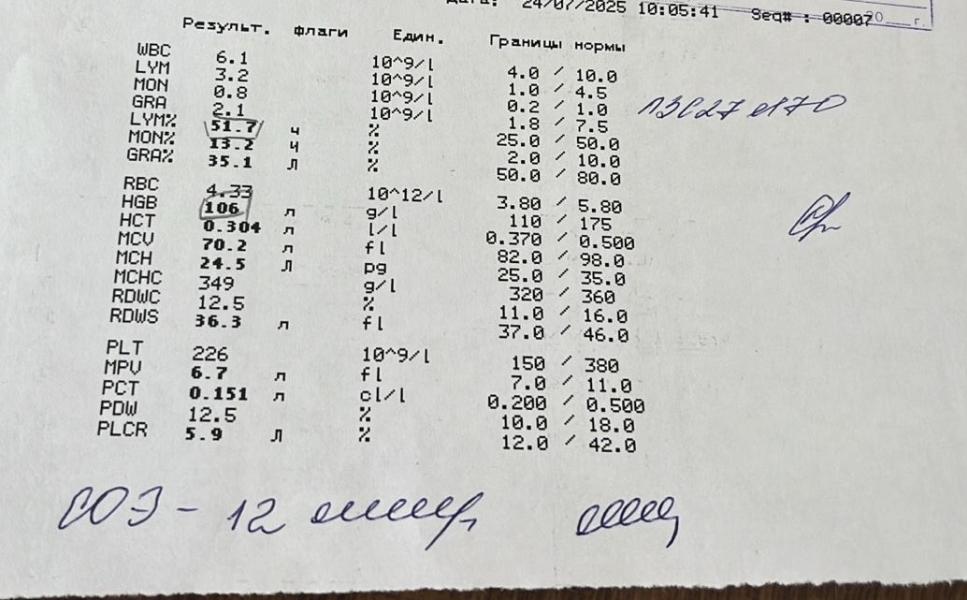 Дата: 24/07/2025 10:05:41 Seq# : 00007 20 г.
Результ. флаги Един. Границы нормы
WBC 6.1 10^9/l 4.0 / 10.0
LYM 3.2 10^9/l 1.0 / 4.5
MON 0.8 10^9/l 0.2 / 1.0
GRA 2.1 10^9/l 1.8 / 7.5
LYM% 51.7 ч % 25.0 / 50.0
MON% 13.2 ч % 2.0 / 10.0
GRA% 35.1 л % 50.0 / 80.0
RBC 4.33 10^12/l 3.80 / 5.80
HGB 106 л g/l 110 / 175
HCT 0.304 л l/l 0.370 / 0.500
MCV 70.2 л fl 82.0 / 98.0
MCH 24.5 л pg 25.0 / 35.0
MCHC 349 g/l 320 / 360
RDWC 12.5 % 11.0 / 16.0
RDWS 36.3 л fl 37.0 / 46.0
PLT 226 10^9/l 150 / 380
MPV 6.7 л fl 7.0 / 11.0
PCT 0.151 л cl/l 0.200 / 0.500
PDW 12.5 % 10.0 / 18.0
PLCR 5.9 л % 12.0 / 42.0
СОЭ - 12